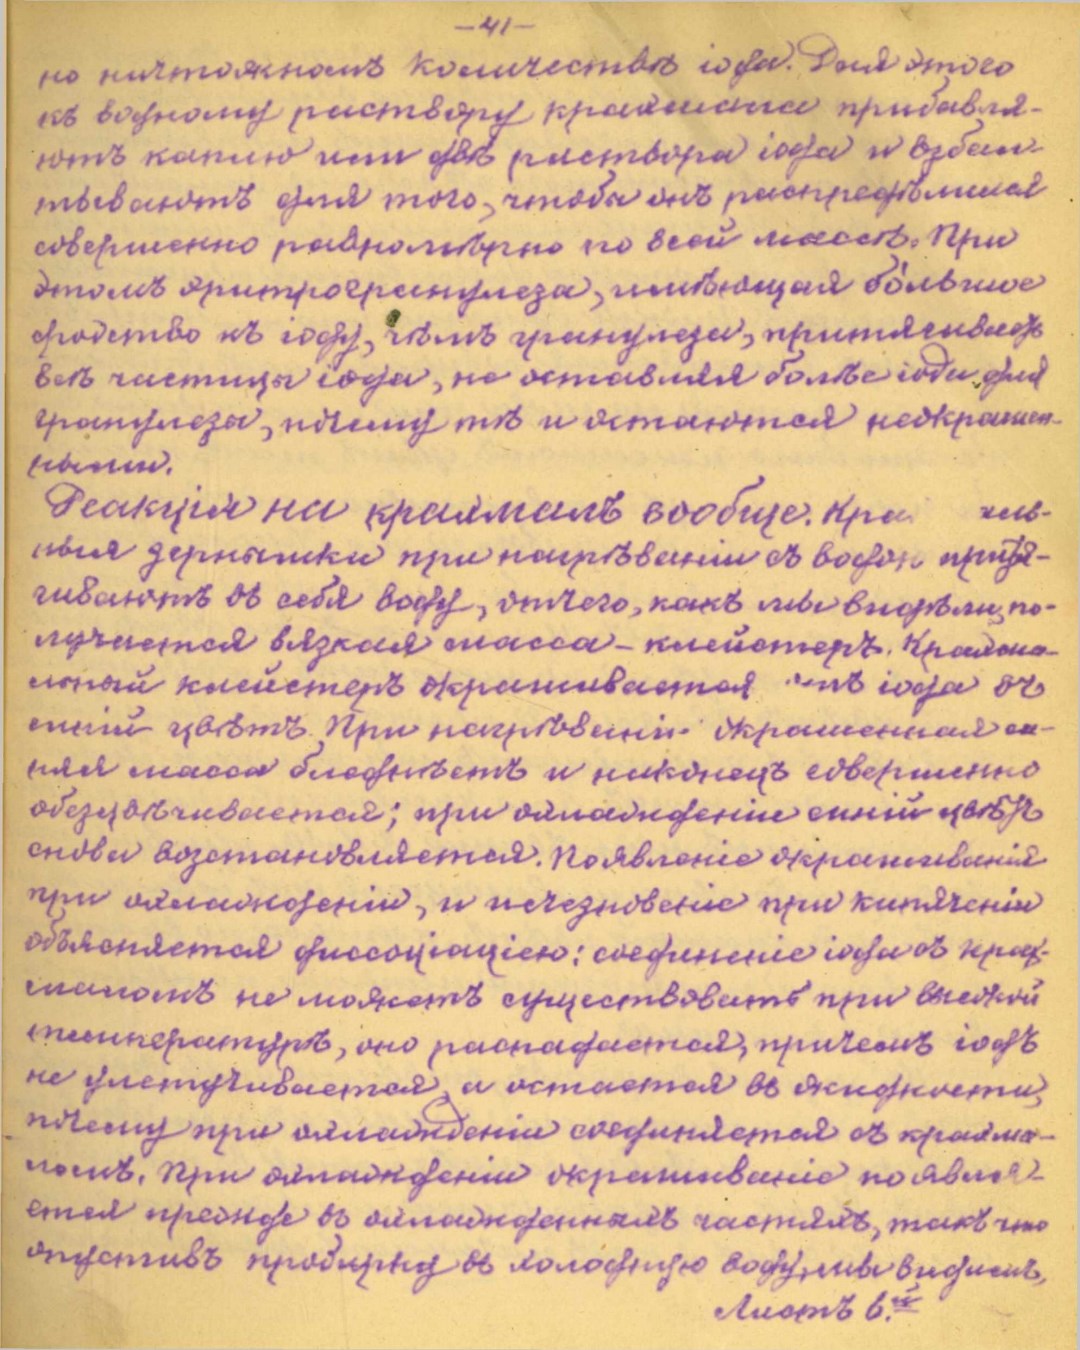 -41-
но ничтожномъ количествѣ іода. Для этого
къ водному раствору крахмала прибавля-
ютъ каплю или двѣ раствора іода и взбал-
тываютъ для того, чтобы онъ распредѣлился
совершенно равномѣрно по всей массѣ. При
этомъ эритрогранулеза, имѣющая бо́льшое
сродство къ іоду, чѣмъ гранулеза, притягиваетъ
всѣ частицы іода, не оставляя болѣе іода для
гранулезы, почему тѣ и остаются неокрашен-
ными.
Реакція на крахмалъ вообще. Кра мль-
ныя зернышки при нагрѣваніи съ водою притя-
гиваютъ въ себя воду, отчего, какъ мы видѣли, по-
лучается вязкая масса - клейстеръ. Крахма-
льный клейстеръ окрашивается отъ іода въ
синій цвѣтъ. При нагрѣваніи окрашенная си-
няя масса блѣднѣетъ и наконецъ совершенно
обезцвѣчивается; при охлажденіи синій цвѣтъ
снова возстановляется. Появленіе окрашиванія
при охлажденіи, и исчезновеніе при кипяченіи
объясняется диссоціаціею: соединеніе іода съ крах-
маломъ не можетъ существовать при высокой
температурѣ, оно распадается, причемъ іодъ
не улетучивается, а остается въ жидкости,
почему при охлажденіи соединяется съ крахма-
ломъ. При охлажденіи окрашиваніе появля-
ется прежде въ охлажденныхъ частяхъ, такъ что
опустивъ пробирку въ холодную воду, мы видимъ,
Листъ 6.й